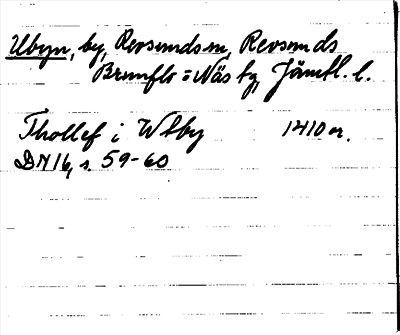 Utbyn, by, Revsundsm, Revsunds
Brunflo = Näs tg, Jämtl. l.
Thollef i Wtby 1410 or.
DN 16, s. 59-60